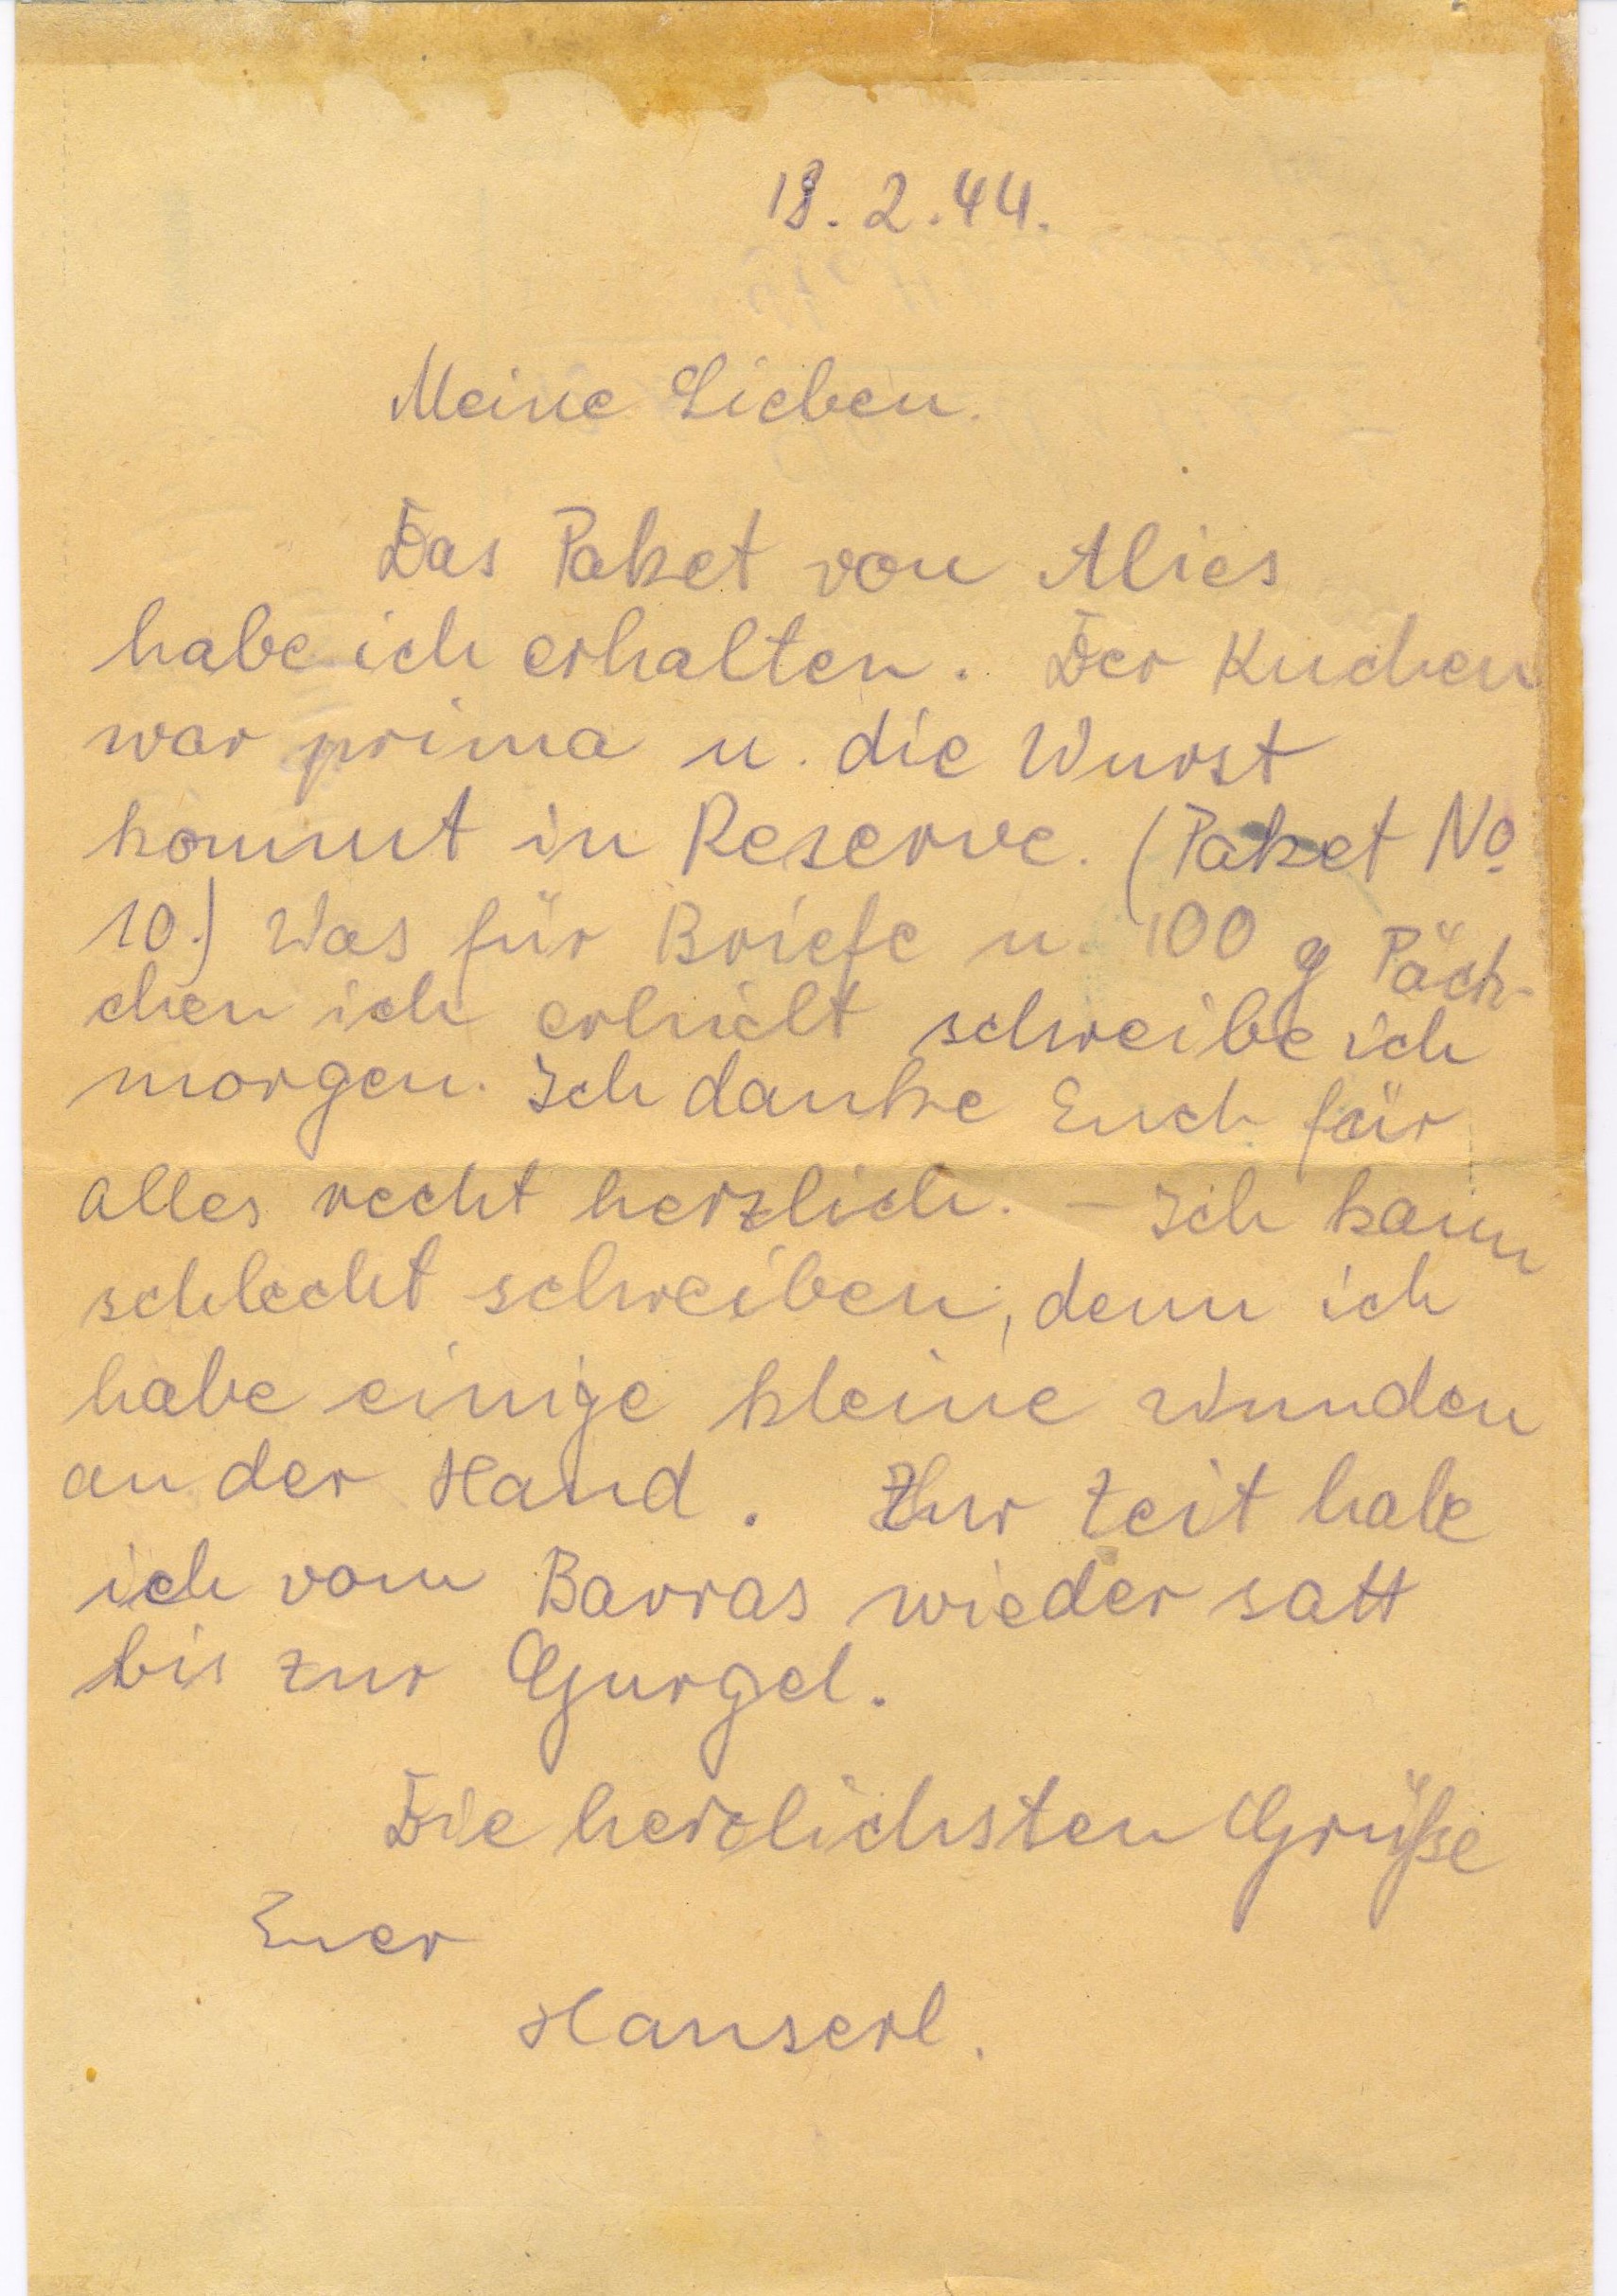 18. 2. 44.
Meine Lieben.
Das Paket von Alies
habe ich erhalten. Der Kuchen
war prima u. die Wurst
kommt in Reserve. (Paket No
10.) Was für Briefe u. 100 g Päck-
chen ich erhielt schreibe ich
morgen. Ich danke Euch für
alles recht herzlich. – Ich kann
schlecht schreiben, denn ich
habe einige kleine Wunden
an der Hand. Zur Zeit habe
ich vom Barras wieder satt
bis zur Gurgel.
Die herzlichsten Grüße
Euer
Hanserl.